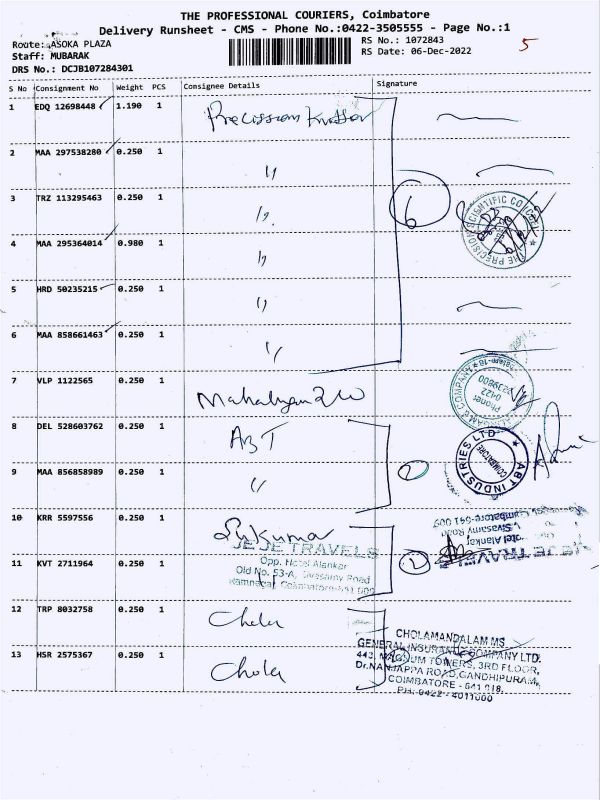 THE PROFESSIONAL COURIERS, Coimbatore
Delivery Runsheet - CMS - Phone No.:0422-3505555 - Page No.:1
Route: ASOKA PLAZA
RS No.: 1072843
5
Staff: MUBARAK
RS Date: 06-Dec-2022
DRS No.: DCJB107284301
S No Consignment No Weight PCS Consignee Details Signature
1 EDQ 12698448 1.190 1
2 MAA 297538280 0.250 1 "
3 TRZ 113295463 0.250 1 "
6
4 MAA 295364014 0.980 1 "
5 HRD 50235215 0.250 1 "
6 MAA 858661463 0.250 1 "
7 VLP 1122565 0.250 1
8 DEL 528603762 0.250 1 ABT
ABT INDUSTRIES LTD
COIMBATORE
9 MAA 856858989 0.250 1 "
2
10 KRR 5597556 0.250 1
JEJE TRAVELS
Opp. Hotel Alankar
Old No. 53-A, Sivasamy Road
11 KVT 2711964 0.250 1
2
12 TRP 8032758 0.250 1 Chola
CHOLAMANDALAM MS
GENERAL INSURANCE COMPANY LTD.
13 HSR 2575367 0.250 1 Chola
442, MAGNUM TOWERS, 3RD FLOOR,
Dr.NANJAPPA ROAD, GANDHIPURAM,
COIMBATORE - 641 018.
PH: 0422 - 4011000